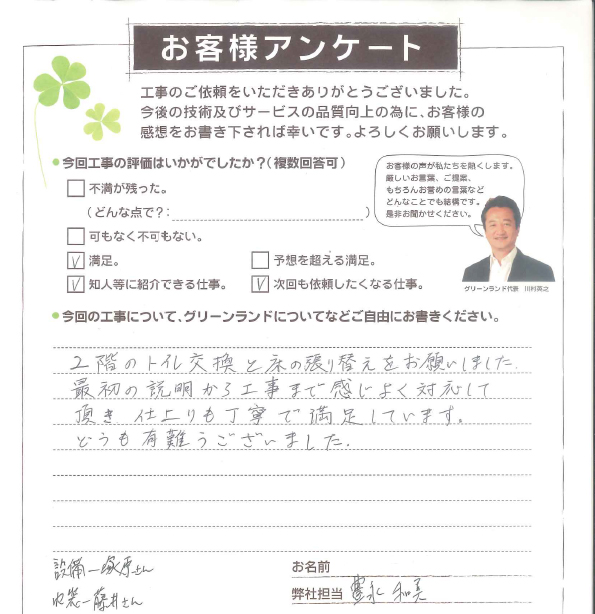 お客様アンケート
工事のご依頼をいただきありがとうございました。
今後の技術及びサービスの品質向上の為に、お客様の
感想をお書き下されば幸いです。よろしくお願いします。
今回工事の評価はいかがでしたか？（複数回答可）
不満が残った。
（どんな点で？： ）
可もなく不可もない。
満足。 予想を超える満足。
知人等に紹介できる仕事。 次回も依頼したくなる仕事。
お客様の声が私たちを熱くします。
厳しいお言葉、ご提案、
もちろんお誉めの言葉など
どんなことでも結構です。
是非お聞かせください。
グリーンランド代表 川村英之
今回の工事について、グリーンランドについてなどご自由にお書きください。
2階のトイレ交換と床の張り替えをお願いしました.
最初の説明から工事まで感じよく対応して
頂き 仕上りも丁寧で満足しています。
どうも有難うございました.
設備ー塚原さん
内装ー藤井さん
お名前
弊社担当 豊永 和美